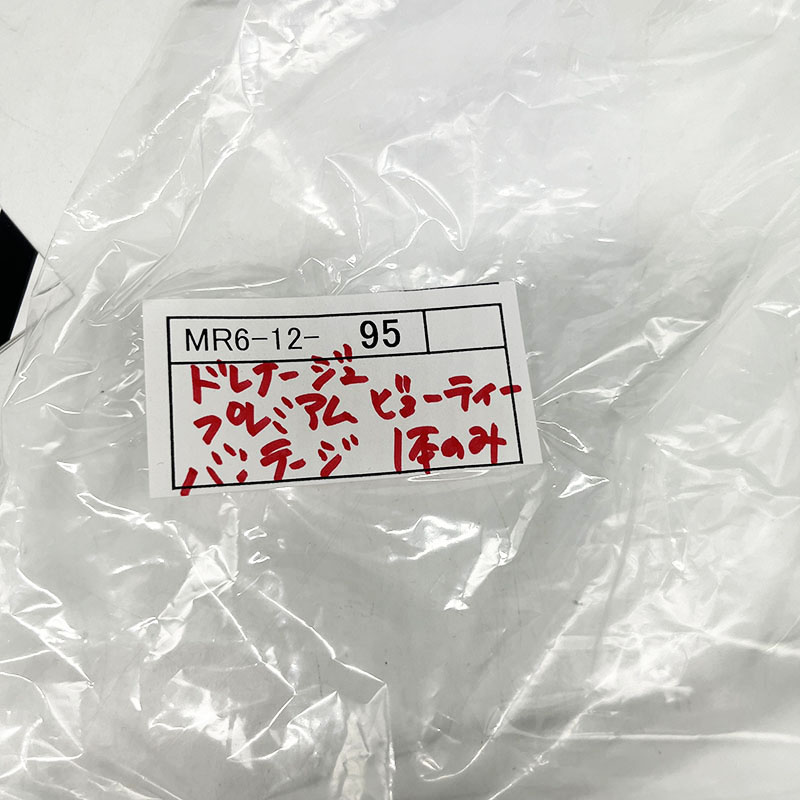 MR6-12- 95
ドレナージュ
プレミアム ビューティー
バンテージ 1本のみ